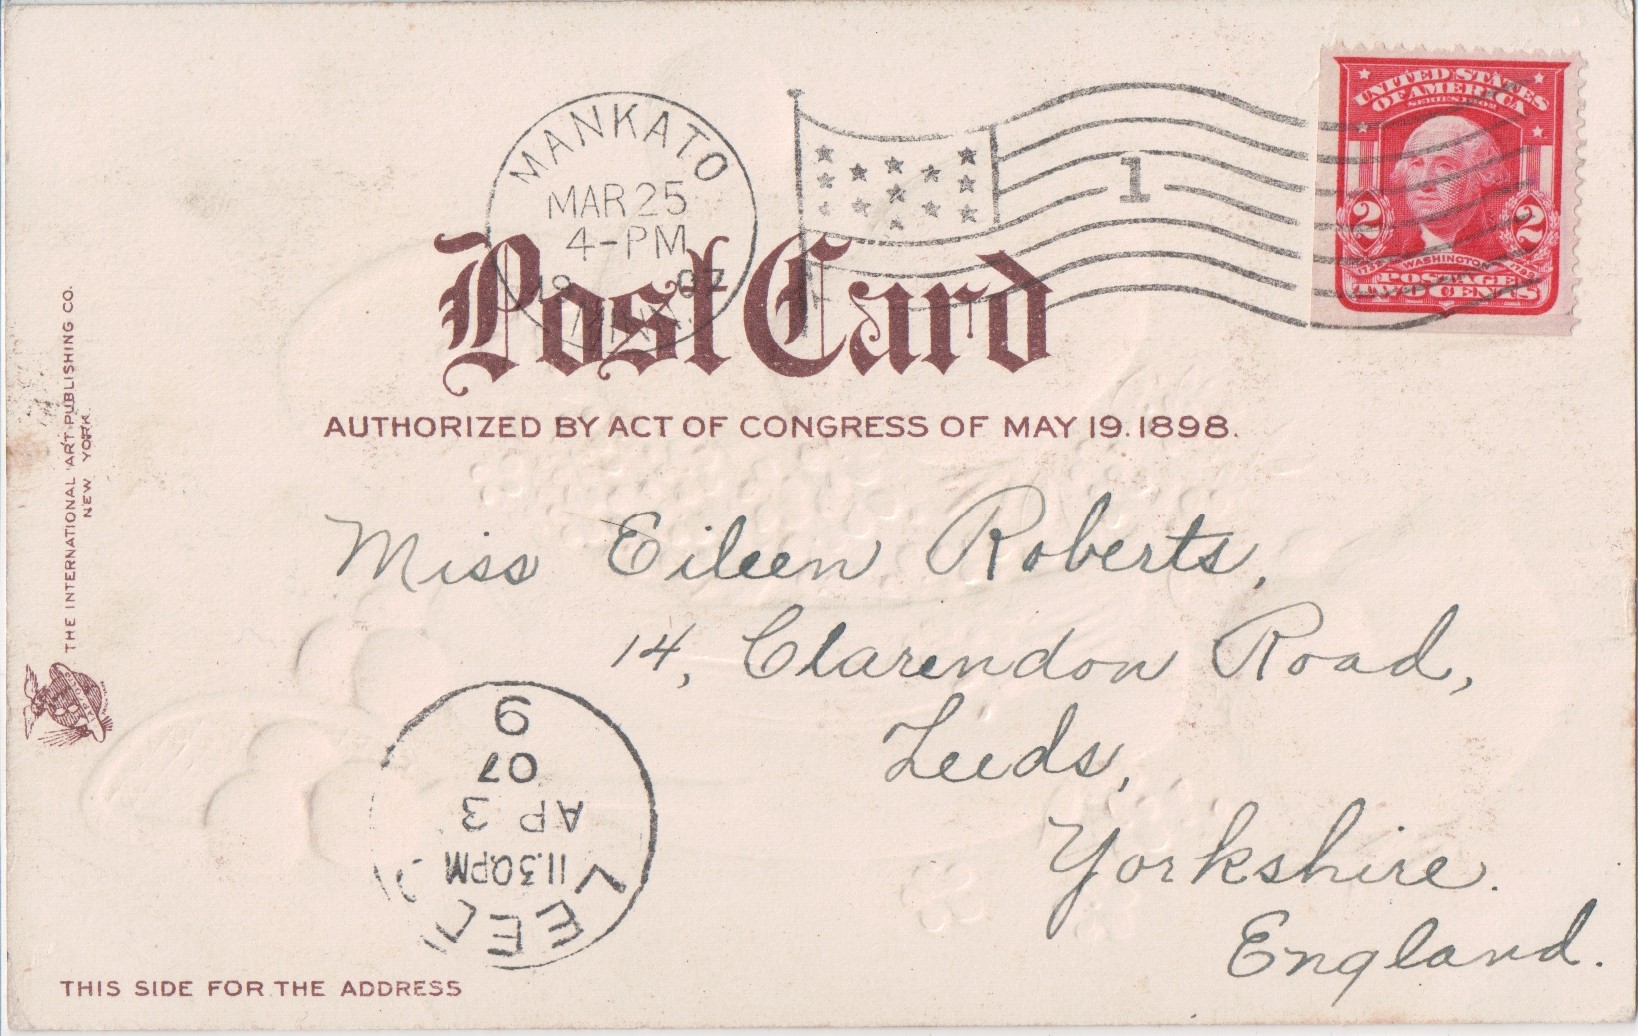 MANKATO
MAR 25
4-PM
07
MINN.
1
UNITED STATES
OF AMERICA
SERIES 1902
2 2
WASHINGTON
POSTAGE
TWO CENTS
Post Card
AUTHORIZED BY ACT OF CONGRESS OF MAY 19.1898.
THE INTERNATIONAL ART PUBLISHING CO.
NEW YORK.
Miss Eileen Roberts,
14, Clarendon Road,
Leeds,
Yorkshire.
England.
LEEDS
11.30PM
AP 3
07
9
THIS SIDE FOR THE ADDRESS